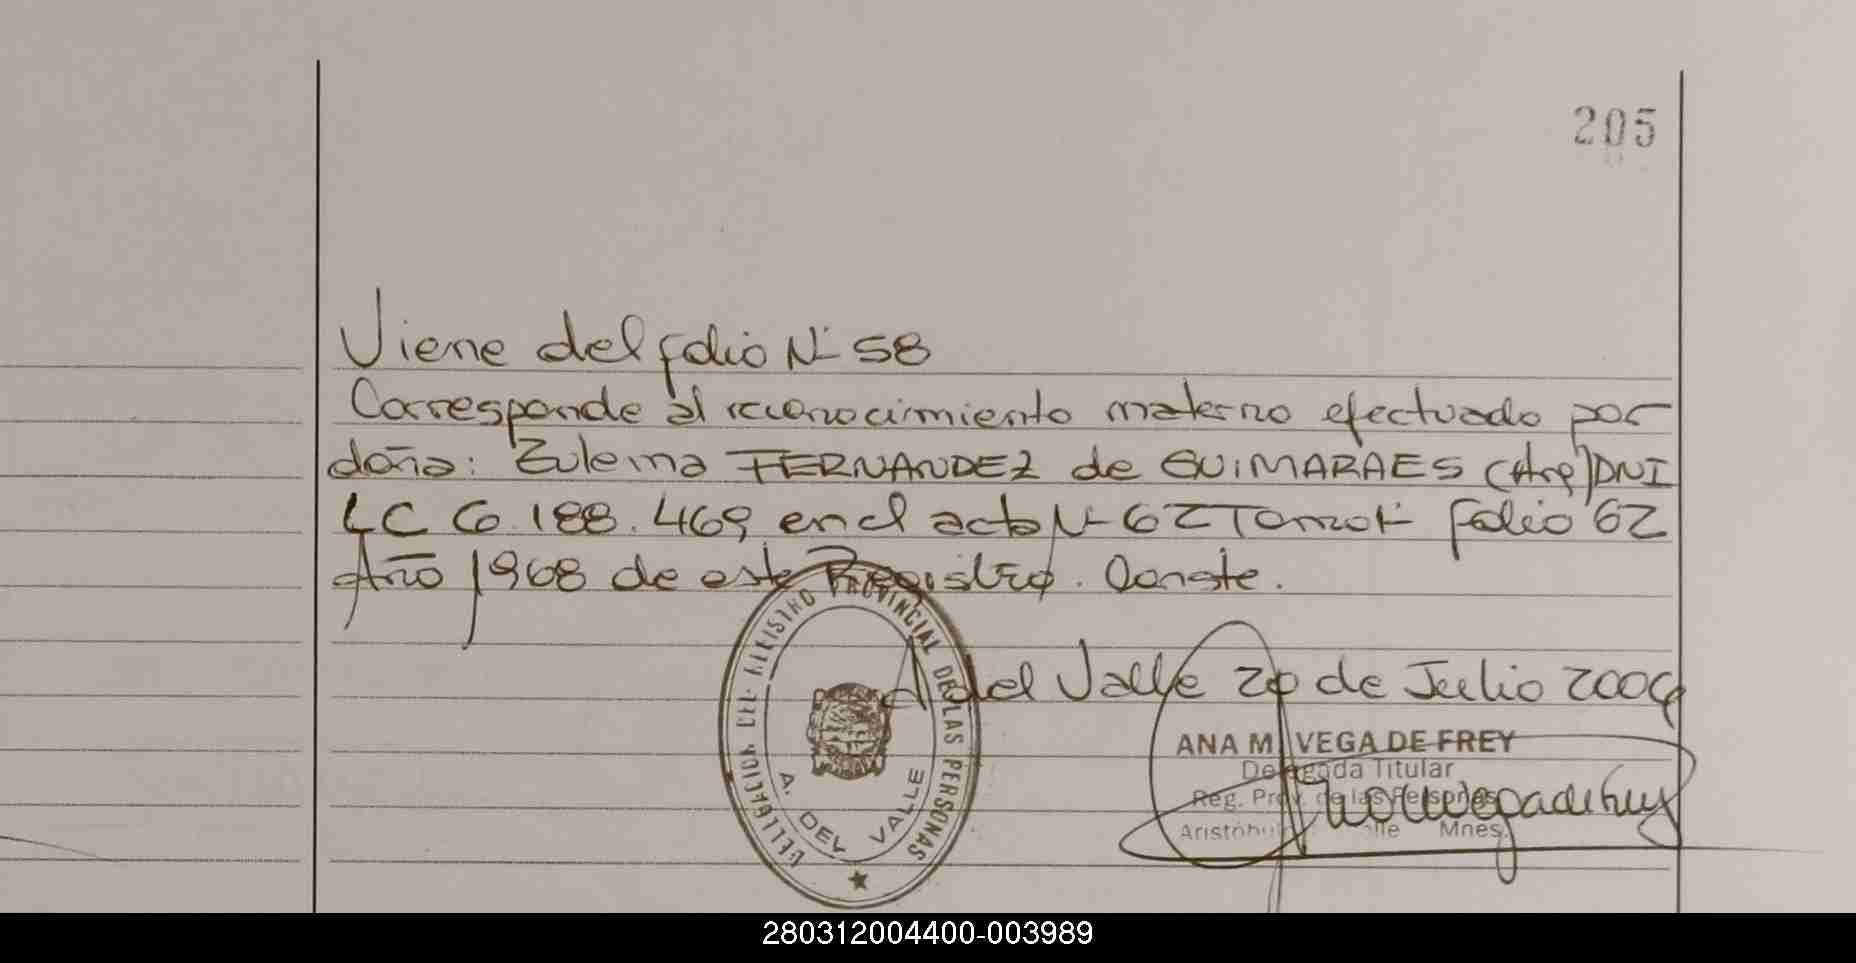 205
Viene del folio Nº 58
Corresponde al reconocimiento materno efectuado por
doña: Zulema FERNANDEZ de GUIMARAES (Arg) DNI
LC 6.188.469, en el acta Nº 62 Tomo I folio 62
Año 1968 de este Registro. Conste.
A del Valle 20 de Julio 2004
DELEGACION DEL REGISTRO PROVINCIAL DE LAS PERSONAS
A. DEL VALLE
ANA M. VEGA DE FREY
Delegada Titular
Reg. Prov. de las Personas
Aristóbulo Valle Mnes.
280312004400-003989